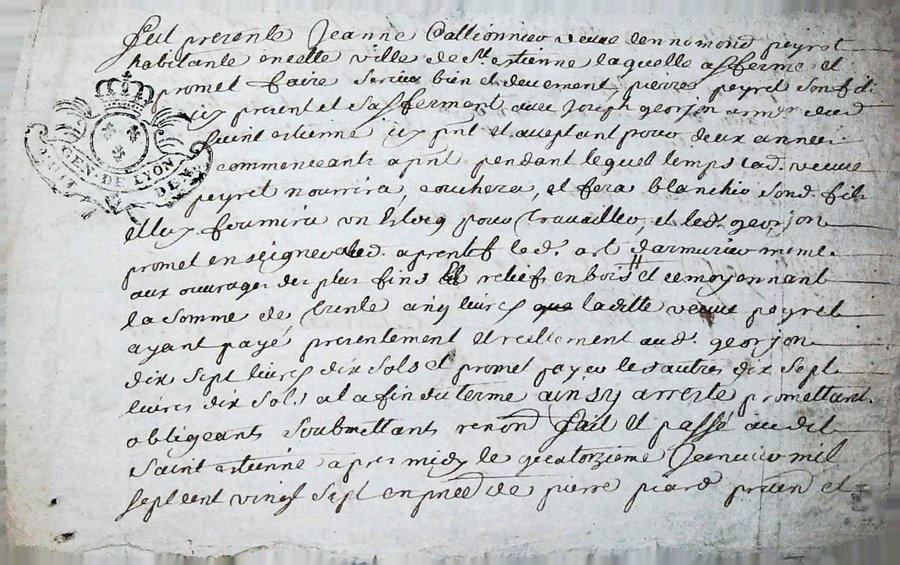 fut presente Jeanne Callionnier veuve dennemond peyret
habitante en cette ville de St estienne laquelle afferme et
promet faire servir bien et deuement pierre peyret son fils
icy present et saffermant avec Joseph georjon armur. dud.
GEN. DE LYON
saint estienne icy pnt et acceptant pour deux années
commenceants a pnt pendant lequel temps lad. veuve
peyret nourrira, couchera, et fera blanchir sond. fils
et luy fournira un pour travailler, et led. georjon
promet enseigner aud. aprentif led. art darmurier meme
aux ouvrages des plus fins relief en bois et ce moyennant
la somme de trente cinq livres que laditte veuve peyret
ayant payé presentement et reellement aud. georjon
dix sept livres dix sols et promet payer les autres dix sept
livres dix sols a la fin du terme ainsy arresté promettant
obligeants soubmettants renond. fait et passé audit
saint estienne apres midy le quatorzieme Janvier mil
sept cent vingt sept en pnce de pierre piard praticien et